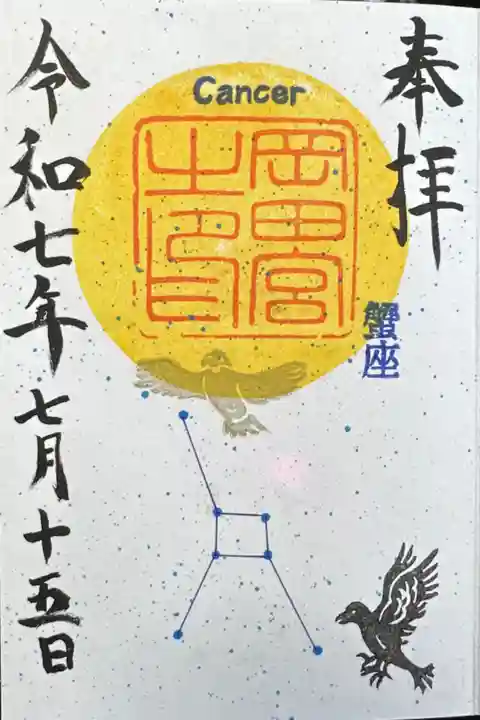 奉拝
Cancer
岡田宮
之印
蟹座
令和七年七月十五日